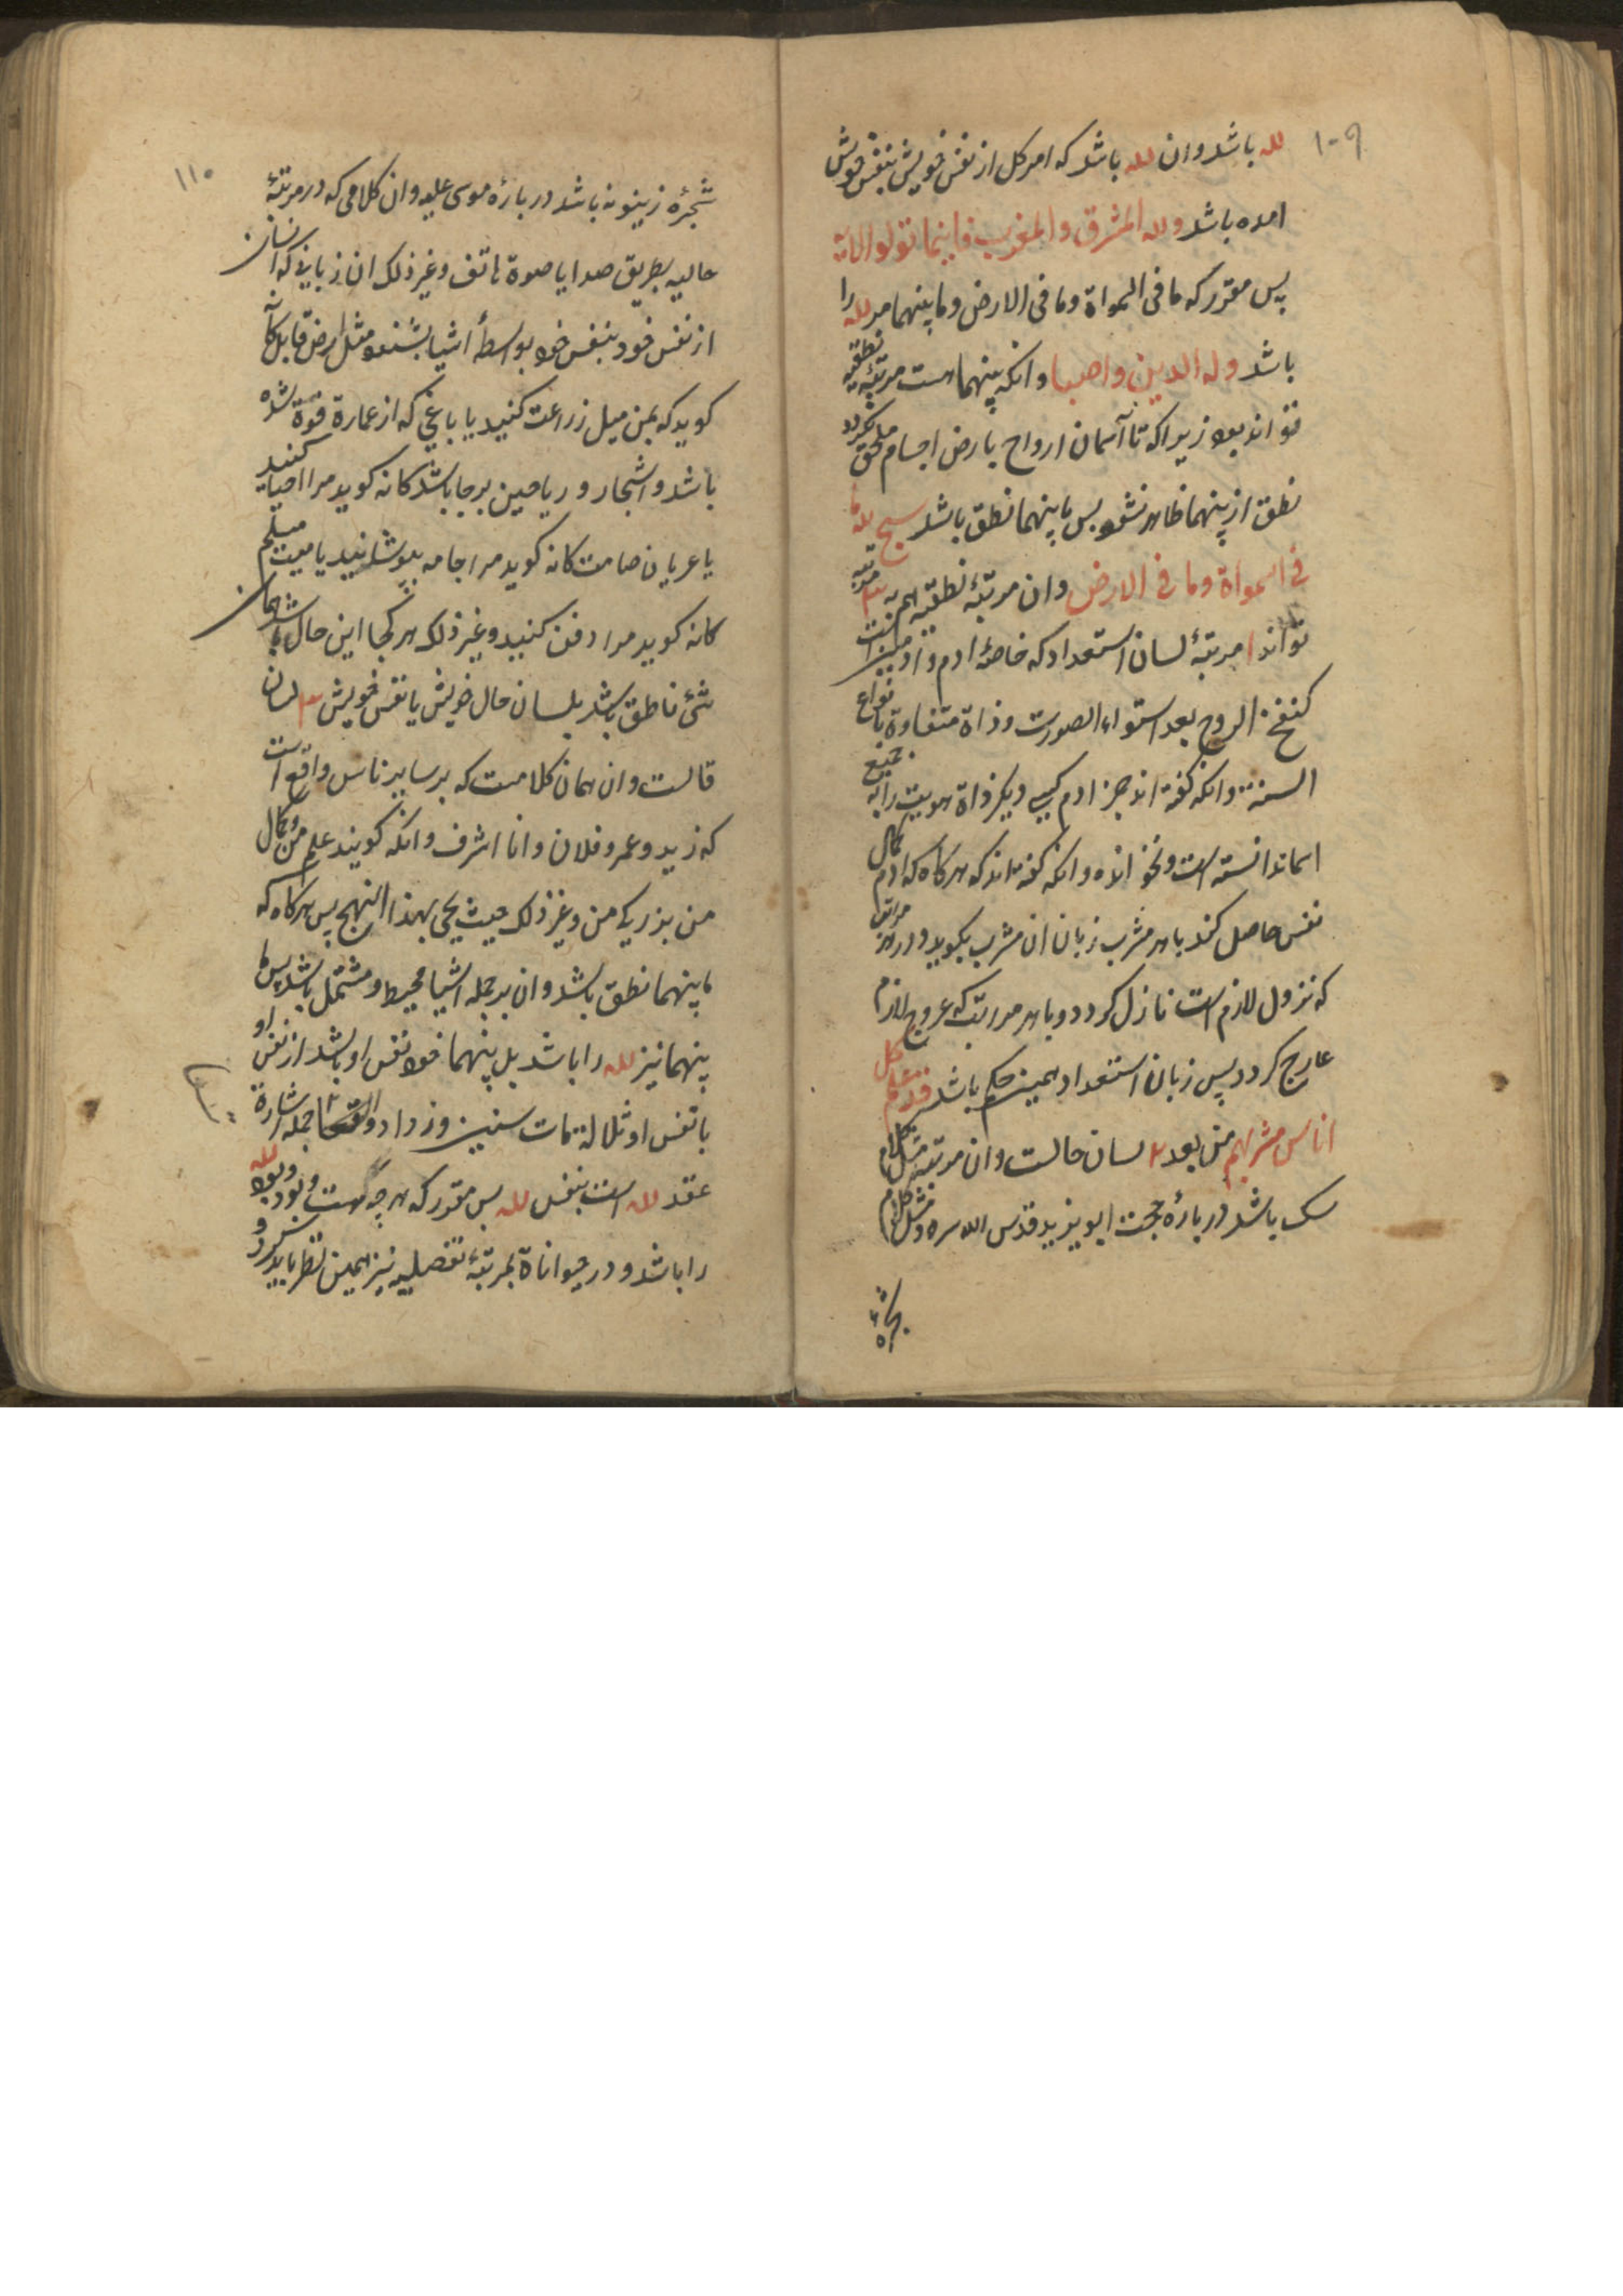 ۱۰۹
لله باشد وان لله باشد که امر کل از نفس خویش بنفس خویش
امده باشد ولله المشرق والمغرب فاینما تولوا الایة
پس مقرر که ما فی السمواة وما فی الارض وما بینهما مر لله را
باشد وله الدین واصبا وانکه بینهماست مرتبهٔ نطقیه
تواند بود زیرا که تا آسمان ارواح بارض اجسام ملحق نکردد
نطق از بینهما ظاهر نشود پس ما بینهما نطق باشد سبح لله ما
فی السمواة وما فی الارض وان مرتبهٔ نطقیه بر سه مرتبه
تواند ۱ مرتبهٔ لسان استعداد که خاصهٔ ادم و
کنفخ الروح بعد استواء الصورت وذاة متفاوة بانواع
السنة وانکه کفته اند جز ادم کسی دیکر ذاة هویت را بجمیع
اسما ندانسته است ونخوانده وانکه کفته اند که هرکاه که ادم کمال
نفس حاصل کند با هر مشرب زبان ان مشرب بکوید ودر هر مراتب
که نزول لازم است نازل کردد وبا هر مراتب که عروج لازم
عارج کردد پس زبان استعداد همین حکم باشد قد علم کل
اناس مشربهم من بعد ۲ لسان حالست وان مرتبه مثل کلام
سک باشد در بارهٔ حجت ابو یزید قدس الله سره ومثل کلام
شجرهٔ
۱۱۰
شجرهٔ زیتونه باشد در بارهٔ موسی علیه وان کلامی که در مرتبهٔ
حالیه بطریق صدا یا صوة هاتف وغیر ذلک ان زبانی که انسان
از نفس خود بنفس خود بواسطهٔ اشیا بشنود مثل ارض قابل کانه
کوید که بمن میل زراعت کنید یا باغی که از عمارة قوة شده
باشد واشجار وریاحین برجا باشد کانه کوید مرا احیا کنید
یا عریان صامت کانه کوید مرا جامه بپوشانید یا میت مسلم
کانه کوید مرا دفن کنید وغیر ذلک هر کجا این حال باشد همان
شیٔ ناطق باشد بلسان حال خویش با نفس خویش ۳ لسان
قالست وان همان کلامست که بر سایر ناس واقع است
که زید وعمرو فلان وانا اشرف وانکه کویند علم من وکمال
من بزرکی من وغیر ذلک حیث یجی بهذا النهج پس هرکاه که
ما بینهما نطق باشد وان بر جمله اشیا محیط ومشتمل باشد پس ما
بینهما نیز لله را باشد بل بینهما خود نفس او باشد از نفس او
با نفس او ثلاثمات سنین وزدادوا تسعا جمله اشارة
عقد لله است بنفس لله پس مقرر که هر چه هست وبود وبود لله
را باشد ودر حیواناة بمرتبهٔ تفصیلیه نیز همین نظر باید کرد و